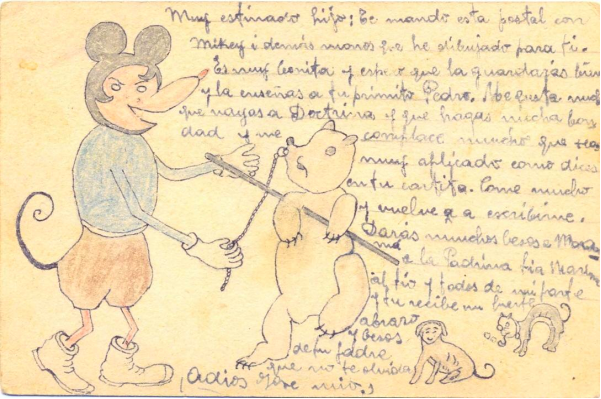 Muy estimado hijo; Te mando esta postal con
Mikey i demás monos que he dibujado para ti.
Es muy bonita y espero que la guardarás bien
y la enseñas a tu primito Pedro. Me gusta mucho
que vayas a Doctrina y que hagas mucha bon
dad y me complace mucho que seas
muy aplicado como dices
en tu cartita. Come mucho
y vuelve a escribirme.
Darás muchos besos a Mama
e la Padrina tia
al tio y todos de mi parte
y tu recibe un fuerte
abrazo
y besos
de tu Padre
que no te olvida
¡Adios mio!